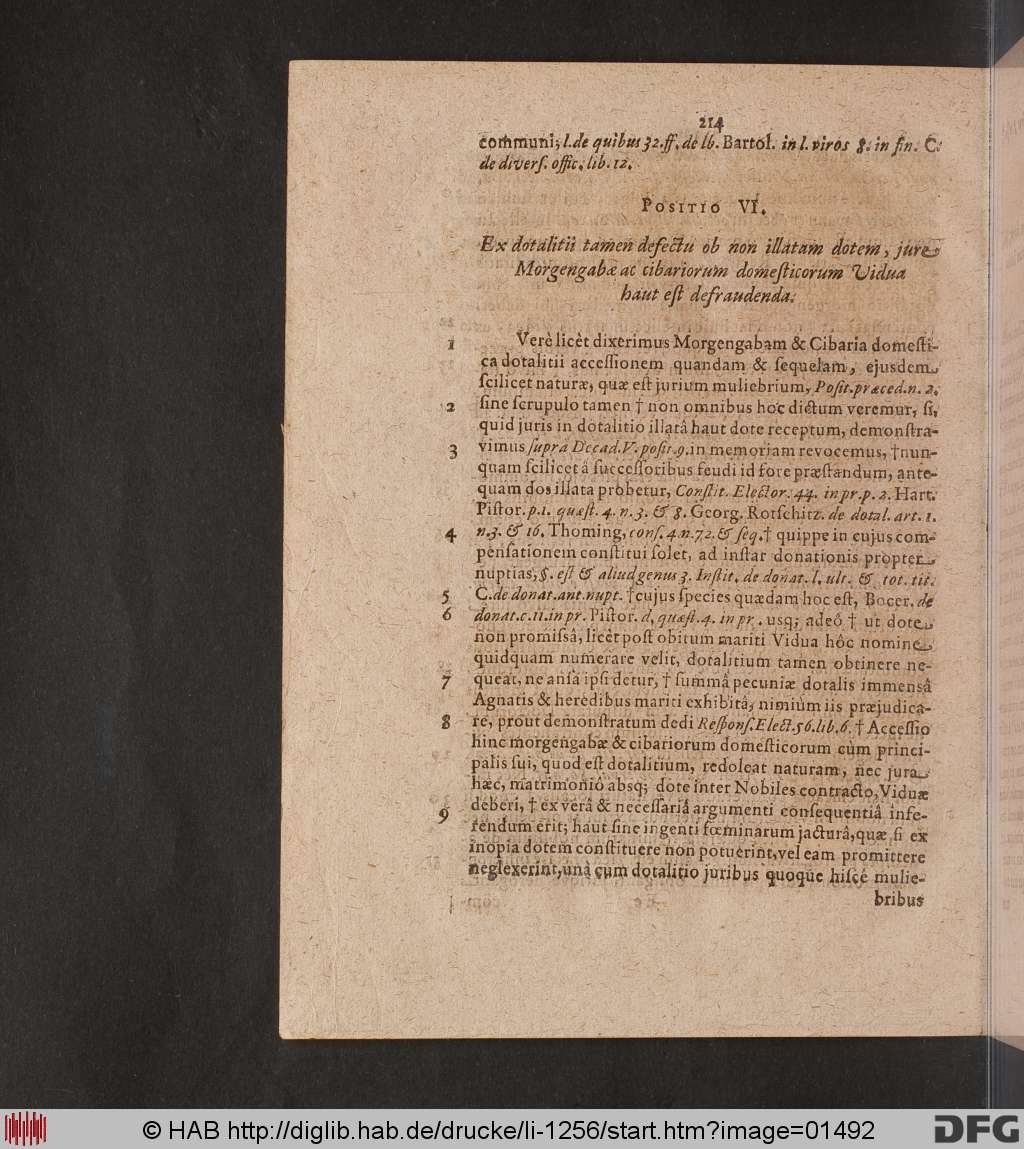 214
communi; l. de quibus 32. ff. de lb. Bartol. in l. viros 8. in fin. C.
de divers. offic. lib. 12.
POSITIO VI.
Ex dotalitii tamen defectu ob non illatam dotem, jure
Morgengabæ ac cibariorum domesticorum Vidua
haut est defraudenda.
1 Verè licèt dixerimus Morgengabam & Cibaria domesti-
ca dotalitii accessionem quandam & sequelam, ejusdem
scilicet naturæ, quæ est jurium muliebrium, Posit. præced. n. 2.
2 sine scrupulo tamen † non omnibus hoc dictum veremur, si,
quid juris in dotalitio illatâ haut dote receptum, demonstra-
3 vimus suprà Decad. V. posit. 9. in memoriam revocemus, † nun-
quam scilicet à successoribus feudi id fore præstandum, ante-
quam dos illata probetur, Constit. Elector. 44. in pr. p. 2. Hart.
Pistor. p. 1. quæst. 4. n. 3. & 8. Georg. Rotschitz. de dotal. art. 1.
4 n. 3. & 16. Thoming, cons. 4. n. 72. & seq. † quippe in cujus com-
pensationem constitui solet, ad instar donationis propter
nuptias, §. est & aliud genus 3. Instit. de donat. l. ult. & tot. tit.
5 C. de donat. ant. nupt. † cujus species quædam hoc est, Bocer. de
6 donat. c. 11. in pr. Pistor. d. quæst. 4. in pr. usq; adeò † ut dote
non promissâ, licèt post obitum mariti Vidua hôc nomine
quidquam numerare velit, dotalitium tamen obtinere ne-
7 queat, ne ansa ipsi detur, † summâ pecuniæ dotalis immensâ
Agnatis & heredibus mariti exhibitâ, nimiùm iis præjudica-
8 re, prout demonstratum dedi Respons. Elect. 56. lib. 6. † Accessio
hinc morgengabæ & cibariorum domesticorum cùm princi-
palis sui, quod est dotalitium, redoleat naturam, nec jura
hæc, matrimoniô absq; dote inter Nobiles contracto, Viduæ
9 deberi, † ex verâ & necessariâ argumenti consequentiâ infe-
rendum erit; haut sine ingenti fœminarum jacturâ, quæ si ex
inopia dotem constituere non potuerint, vel eam promittere
neglexerint, unà cum dotalitio juribus quoque hisce mulie-
bribus
© HAB http://diglib.hab.de/drucke/li-1256/start.htm?image=01492
DFG